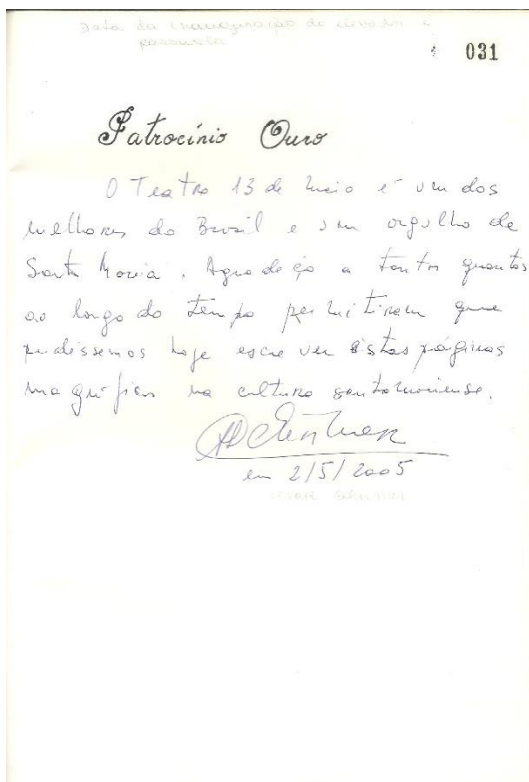 Data da inauguração do elevador e
passarela
031
Patrocínio Ouro
O Teatro 13 de Maio é um dos
melhores do Brasil e um orgulho de
Santa Maria. Agradeço a tantos quantos
ao longo do tempo permitiram que
pudéssemos hoje escrever estas páginas
magníficas na cultura santamariense.
em 2/5/2005